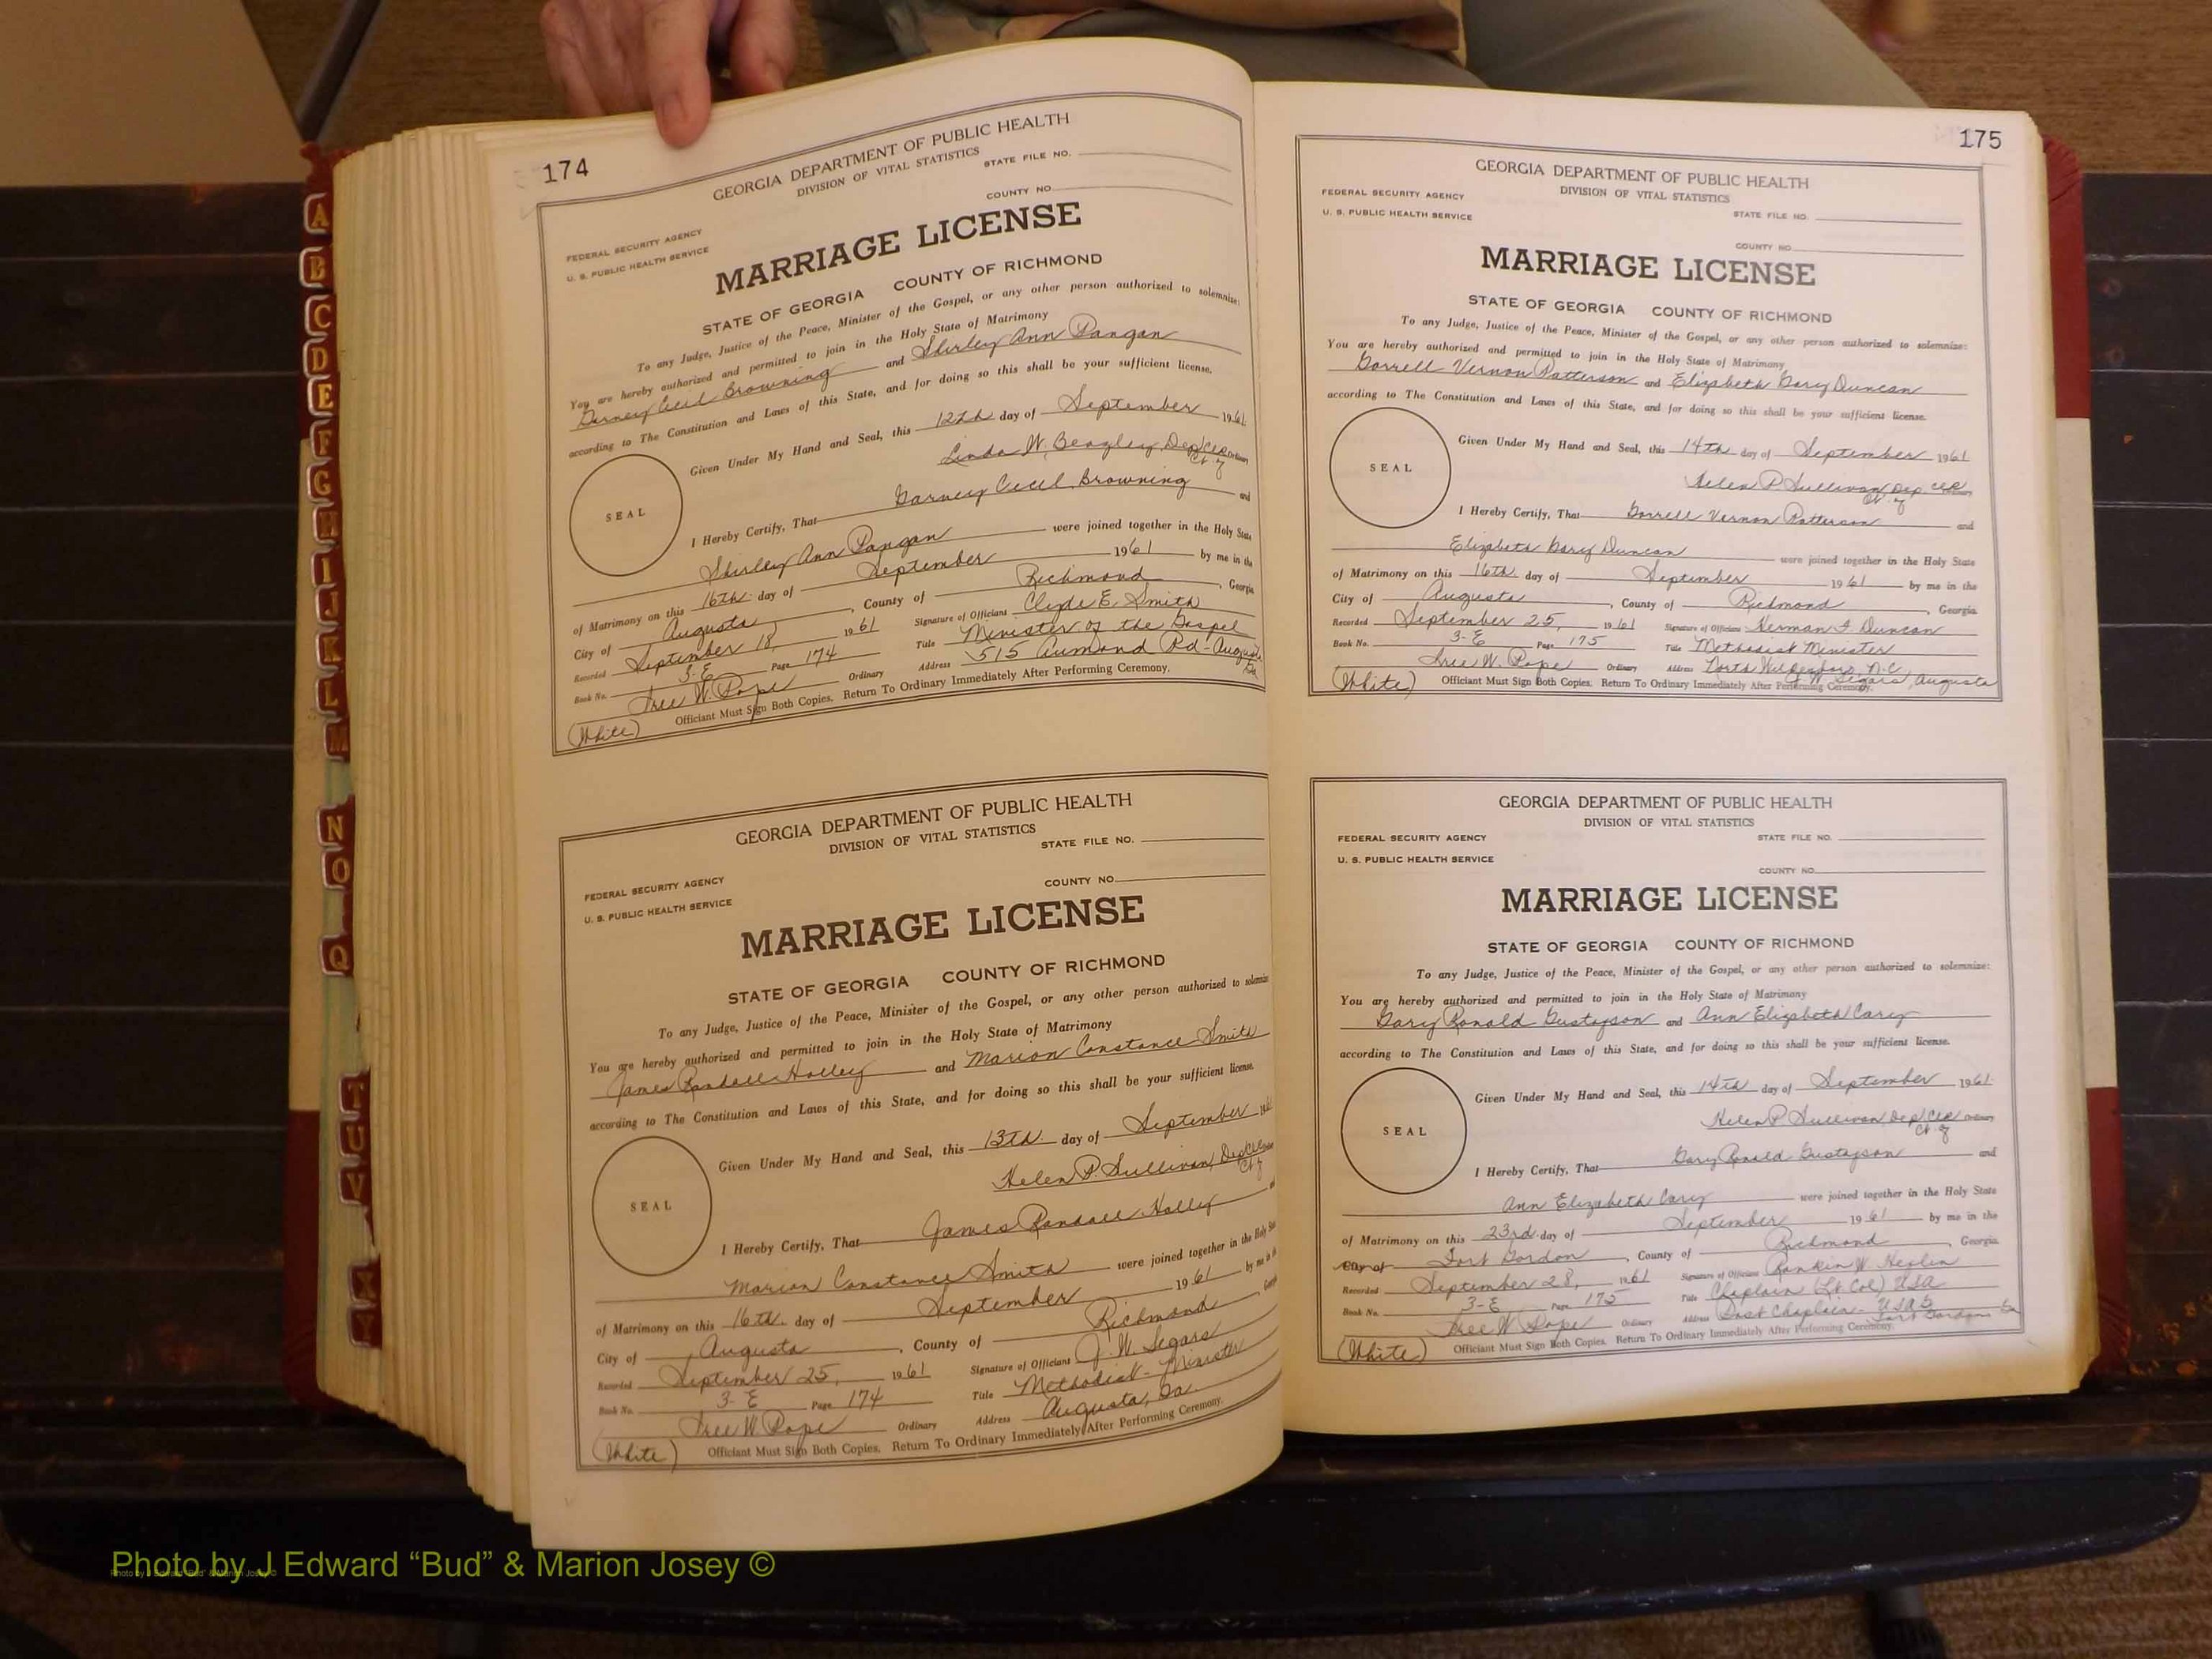 174
GEORGIA DEPARTMENT OF PUBLIC HEALTH
DIVISION OF VITAL STATISTICS
STATE FILE NO.
COUNTY NO.
FEDERAL SECURITY AGENCY
U. S. PUBLIC HEALTH SERVICE
MARRIAGE LICENSE
STATE OF GEORGIA COUNTY OF RICHMOND
To any Judge, Justice of the Peace, Minister of the Gospel, or any other person authorized to solemnize:
You are hereby authorized and permitted to join in the Holy State of Matrimony
Cecil Browning and Shirley Ann Pangan
according to The Constitution and Laws of this State, and for doing so this shall be your sufficient license.
Given Under My Hand and Seal, this 12th day of September 1961
Linda W. Beazley Dep Clk Ordinary
Ct. of
SEAL
I Hereby Certify, That Cecil Browning and
Shirley Ann Pangan were joined together in the Holy State
of Matrimony on this 16th day of September 1961 by me in the
City of Augusta, County of Richmond, Georgia
Recorded September 18, 1961 Signature of Officiant Clyde E. Smith
Book No. 3-E Page 174 Title Minister of the Gospel
Tree W. Pope Ordinary Address 515 Aumond Rd - Augusta
Ga
(White) Officiant Must Sign Both Copies. Return To Ordinary Immediately After Performing Ceremony.
GEORGIA DEPARTMENT OF PUBLIC HEALTH
DIVISION OF VITAL STATISTICS
STATE FILE NO.
COUNTY NO.
FEDERAL SECURITY AGENCY
U. S. PUBLIC HEALTH SERVICE
MARRIAGE LICENSE
STATE OF GEORGIA COUNTY OF RICHMOND
To any Judge, Justice of the Peace, Minister of the Gospel, or any other person authorized to solemnize
You are hereby authorized and permitted to join in the Holy State of Matrimony
James Randall Holley and Marion Constance Smith
according to The Constitution and Laws of this State, and for doing so this shall be your sufficient license.
Given Under My Hand and Seal, this 13th day of September 1961
Helen P. Sullivan Dep Clk Ordinary
Ct. of
SEAL
I Hereby Certify, That James Randall Holley and
Marion Constance Smith were joined together in the Holy State
of Matrimony on this 16th day of September 1961 by me in the
City of Augusta, County of Richmond, Georgia
Recorded September 25, 1961 Signature of Officiant J. W. Segars
Book No. 3-E Page 174 Title Methodist-Minister
Tree W. Pope Ordinary Address Augusta, Ga.
(White) Officiant Must Sign Both Copies. Return To Ordinary Immediately After Performing Ceremony.
175
GEORGIA DEPARTMENT OF PUBLIC HEALTH
DIVISION OF VITAL STATISTICS
FEDERAL SECURITY AGENCY
U. S. PUBLIC HEALTH SERVICE
STATE FILE NO.
COUNTY NO.
MARRIAGE LICENSE
STATE OF GEORGIA COUNTY OF RICHMOND
To any Judge, Justice of the Peace, Minister of the Gospel, or any other person authorized to solemnize:
You are hereby authorized and permitted to join in the Holy State of Matrimony
Vernon Patterson and Elizabeth Gary Duncan
according to The Constitution and Laws of this State, and for doing so this shall be your sufficient license.
Given Under My Hand and Seal, this 14th day of September 1961
Helen P. Sullivan Dep Clk Ordinary
Ct. of
SEAL
I Hereby Certify, That Vernon Patterson and
Elizabeth Gary Duncan were joined together in the Holy State
of Matrimony on this 16th day of September 1961 by me in the
City of Augusta, County of Richmond, Georgia.
Recorded September 25, 1961 Signature of Officiant Herman F. Duncan
Book No. 3-E Page 175 Title Methodist Minister
Tree W. Pope Ordinary Address North Wilkesboro, N.C.
J. W. Segars, Augusta
(White) Officiant Must Sign Both Copies. Return To Ordinary Immediately After Performing Ceremony.
GEORGIA DEPARTMENT OF PUBLIC HEALTH
DIVISION OF VITAL STATISTICS
FEDERAL SECURITY AGENCY
STATE FILE NO.
U. S. PUBLIC HEALTH SERVICE
COUNTY NO.
MARRIAGE LICENSE
STATE OF GEORGIA COUNTY OF RICHMOND
To any Judge, Justice of the Peace, Minister of the Gospel, or any other person authorized to solemnize:
You are hereby authorized and permitted to join in the Holy State of Matrimony
Gary Ronald Gustafson and Ann Elizabeth Cary
according to The Constitution and Laws of this State, and for doing so this shall be your sufficient license.
Given Under My Hand and Seal, this 14th day of September 1961
Helen P. Sullivan Dep Clk Ordinary
Ct. of
SEAL
I Hereby Certify, That Gary Ronald Gustafson and
Ann Elizabeth Cary were joined together in the Holy State
of Matrimony on this 23rd day of September 1961 by me in the
City of Fort Gordon, County of Richmond, Georgia
Recorded September 28, 1961 Signature of Officiant Rankin W.
Book No. 3-E Page 175 Title Chaplain (Lt Col) USA
Tree W. Pope Ordinary Address Post Chaplain - USAS
Fort Gordon Ga
(White) Officiant Must Sign Both Copies. Return To Ordinary Immediately After Performing Ceremony.
A
B
C
D
E
F
G
H
I
J
K
L
M
N
O
Q
T
U
V
X
Y
Photo by J Edward “Bud” & Marion Josey ©
Photo by J Edward "Bud" & Marion Josey ©